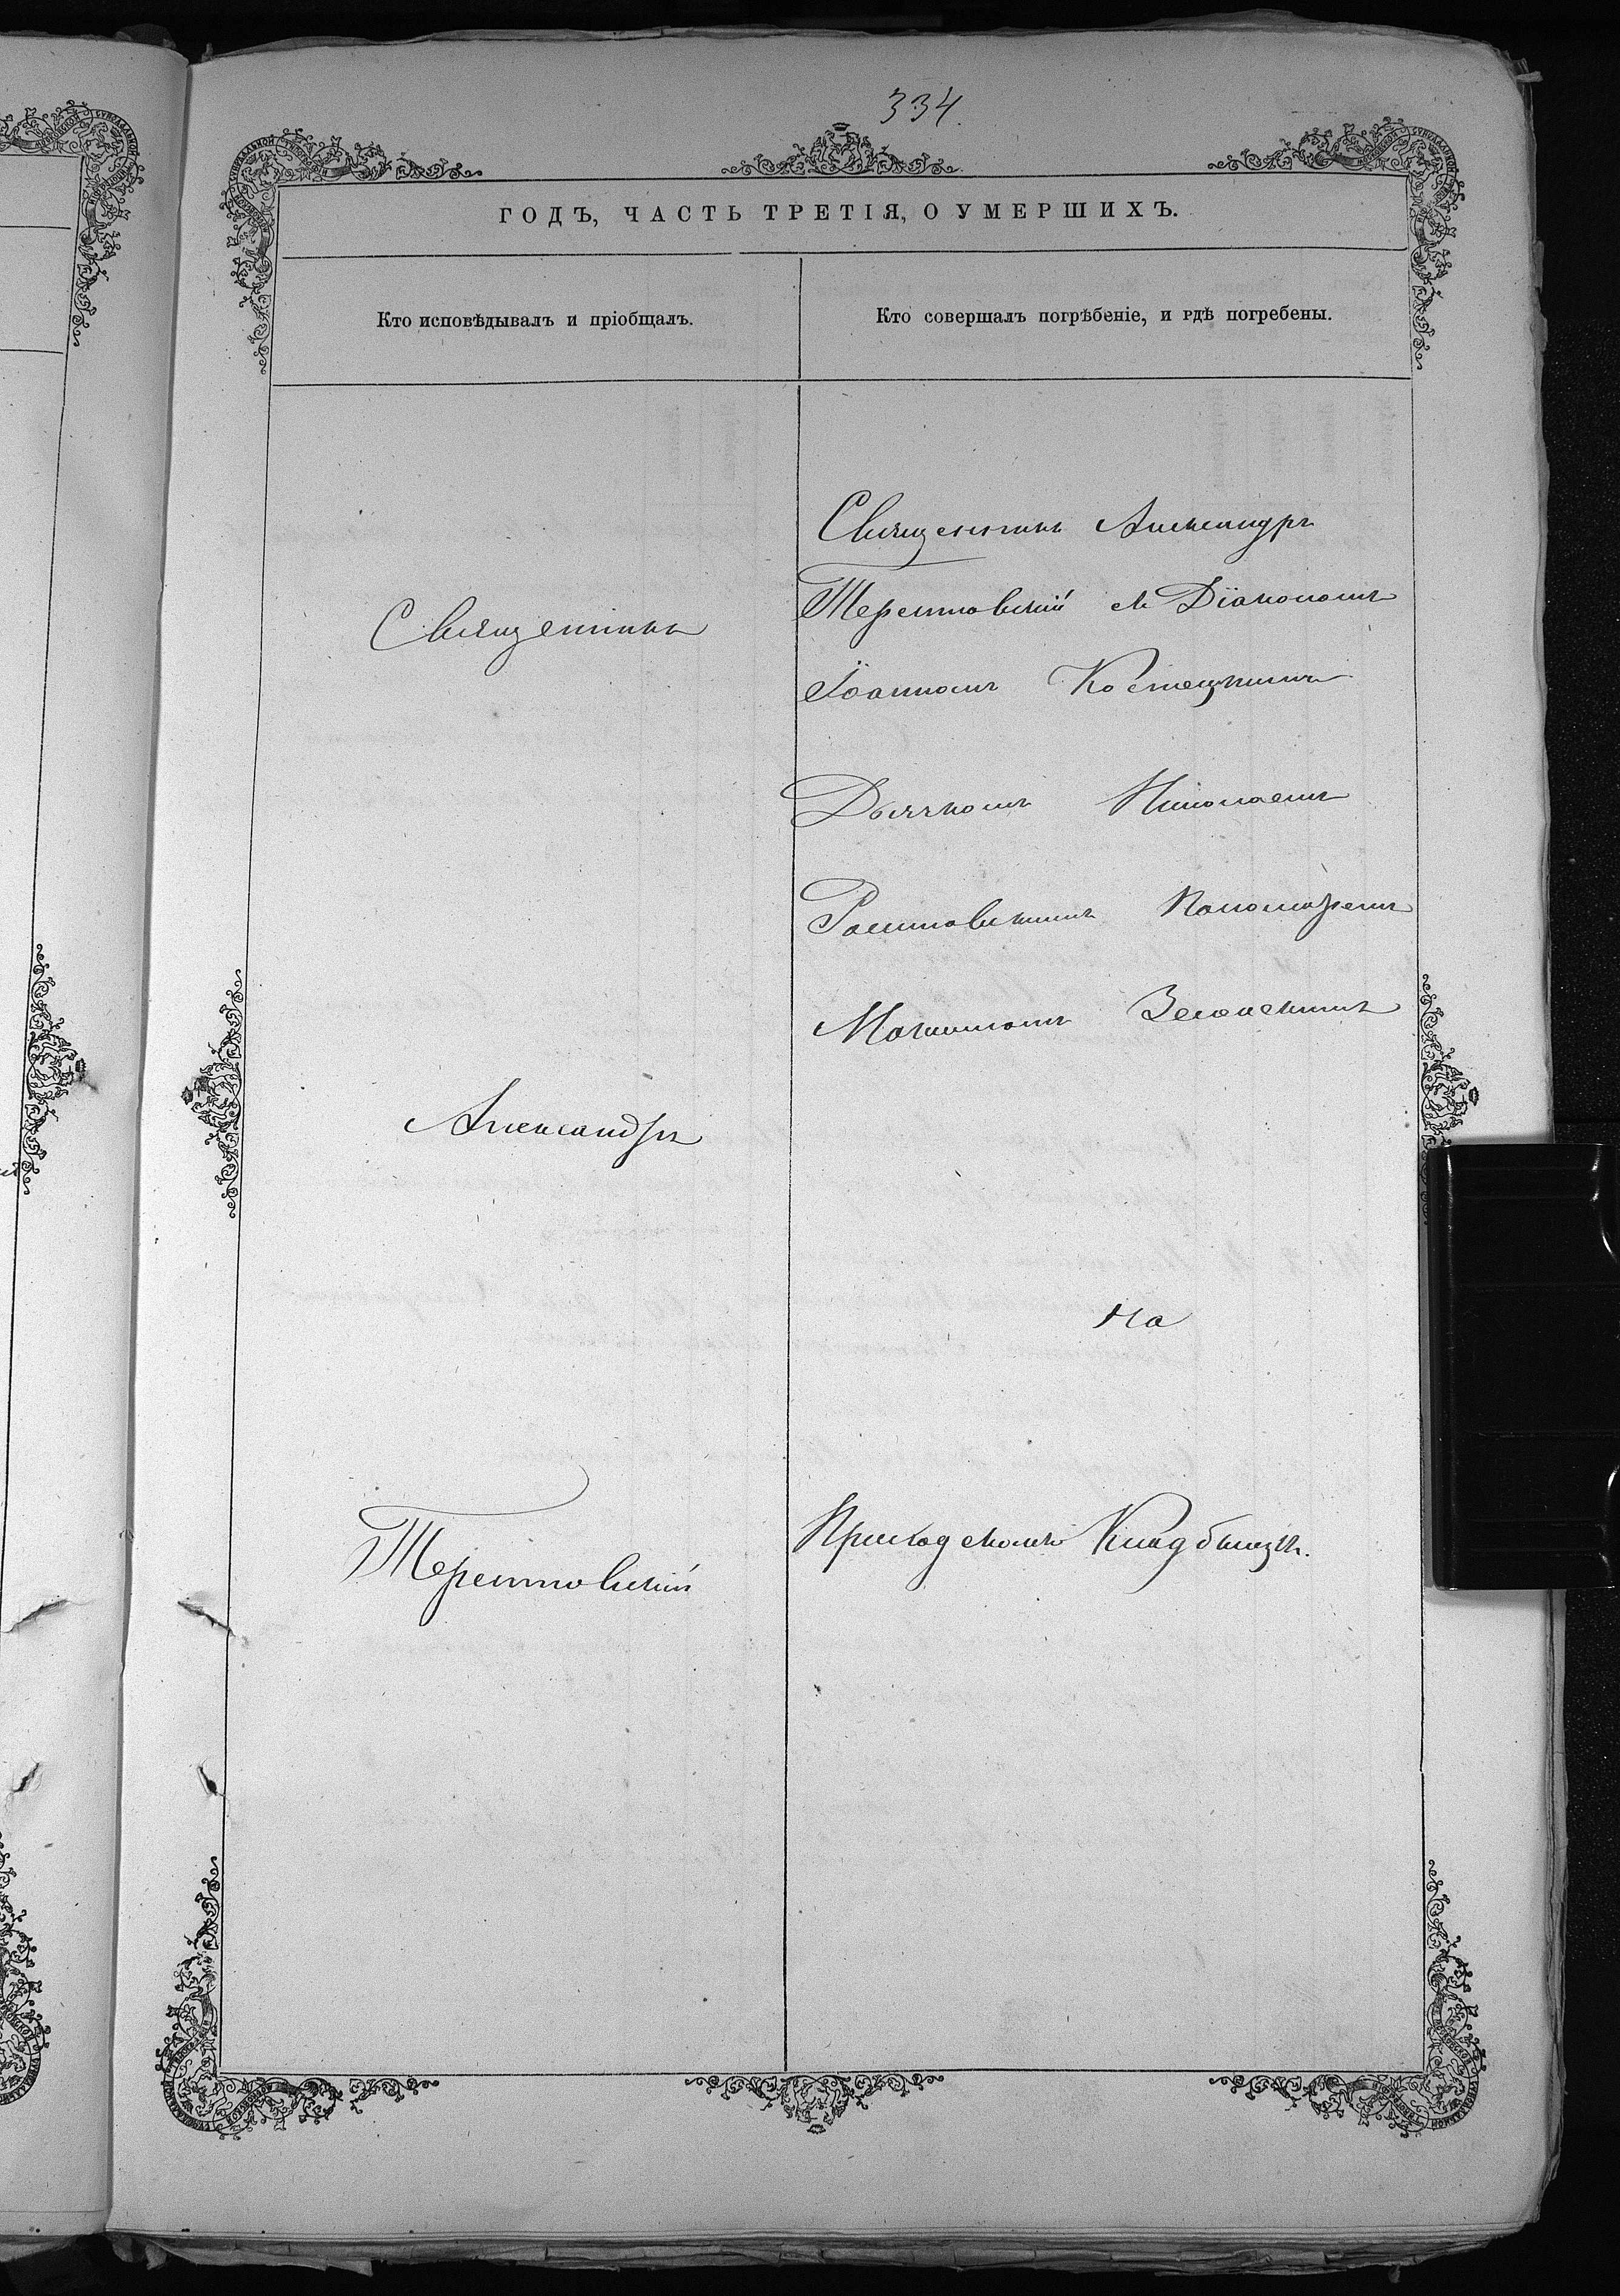 334.
ГОДЪ, ЧАСТЬ ТРЕТІЯ, О УМЕРШИХЪ.
Кто исповѣдывалъ и пріобщалъ.
Кто совершалъ погрѣбеніе, и гдѣ погребены.
Священникъ
Александръ
Терентовскій
Священникъ Александръ
Терентовскій съ Діакономъ
Іоанномъ Костецкимъ
Дьячкомъ Николаемъ
Пономаремъ
на
Приходскомъ Кладбищѣ.